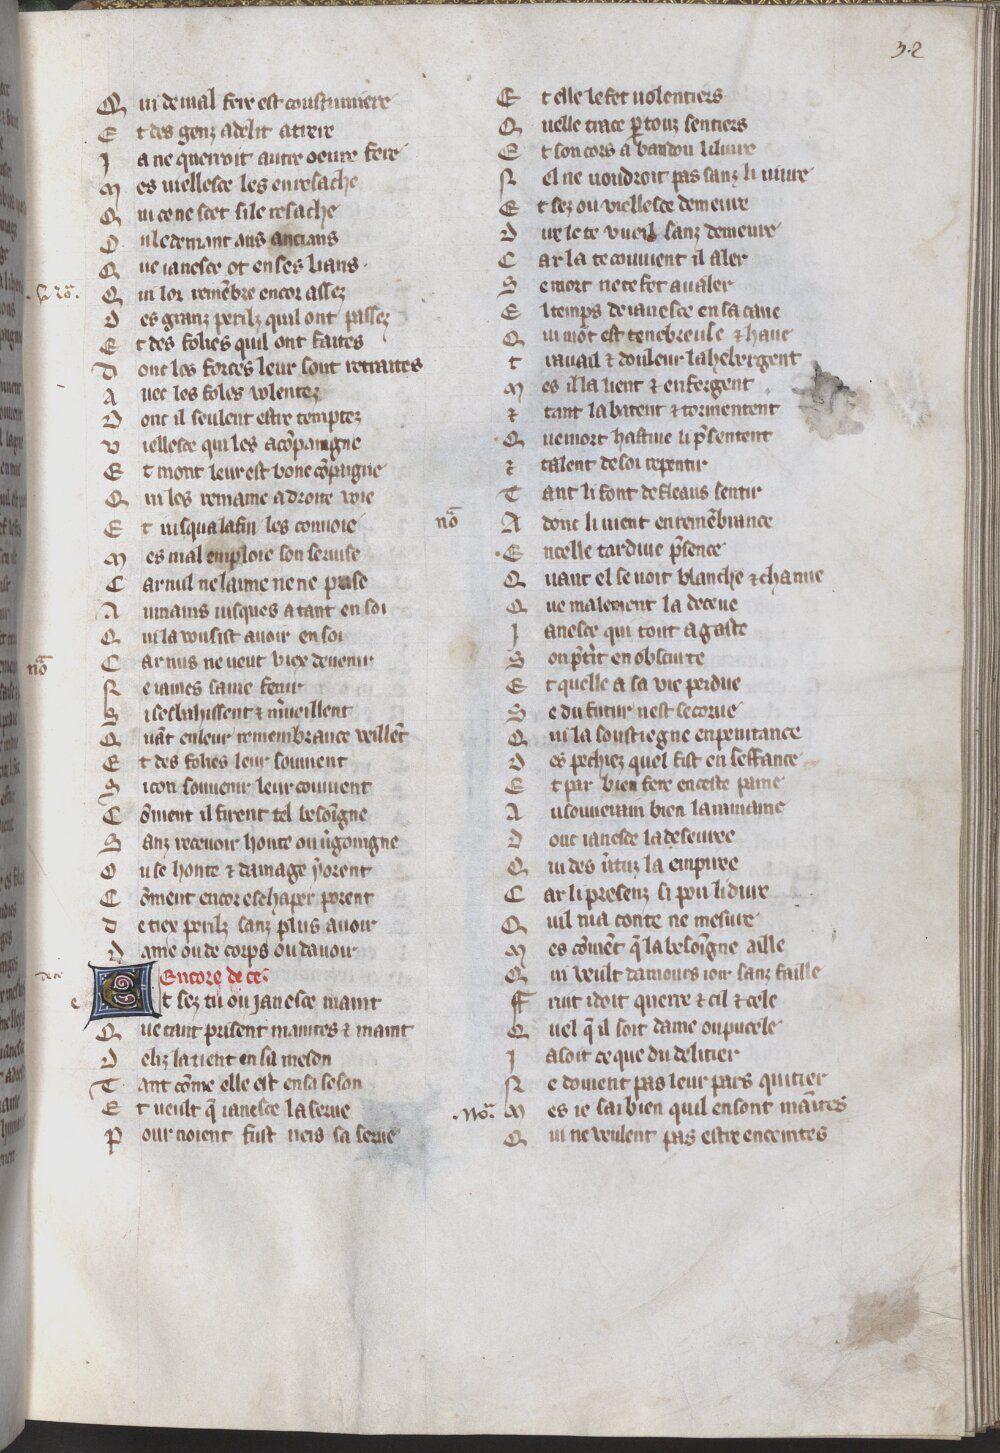 32
Q ui de mal fere est coustumiere
E t des genz a delit atreire
J a ne querroit autre oeure fere
M es viellesce les enresache
Q ui ce ne scet si le resache
O u le demant aus ancians
Q ue ianesce ot en ses lians
Q ui lor remẽbre encor assez
D es granz perilz quil ont passez
E t des folies quil ont faites
D ont les forces leur sont retraites
A uec les foles volentez
D ont il seulent estre temptez
V iellesce qui les acõpaingne
E t moult leur est bone cõpaigne
Q ui les remaine a droite voie
E t iusqua la fin les conuoie
M es mal emploie son seruise
C ar nul ne laime ne ne prise
A umains iusques a tant en soi
Q ui la vousist auoir en soi
C ar nus ne ueut viex deuenir
N e iames sa uie fenir
S i sesbahissent & m̃ueillent
Q uãt en leur remembrance veillẽt
E t des folies leur souuient
S i con souuenir leur couuient
C õment il firent tel besoigne
S anz receuoir honte ou ũgoingne
O u se honte & damage y orent
C õment encor eschaper porent
D e tiex perilz sanz plus auoir
D ame ou de corps ou dauoir
Encore de ce
E t sez tu ou janesce maint
Q ue tant prisent maintes & maint
D eliz la tient en sa meson
T ant cõme elle est en sa seson
E t ueult q̃ ianesce la serue
P our noient fust neis sa serue
E t elle le fet uolentiers
Q uelle trace p touz sentiers
E t son cors a bandon li liure
N el ne uoudroit pas sanz li uiure
E t sez ou viellesce demeure
D ire le te vueil sanz demeure
C ar la te couuient il aler
S e mort ne te fet aualer
E l temps de ianesce en sa caue
Q ui moult est tenebreuse & haue
T rauail & douleur la hebergent
M es il la lient & enfergent
& tant la batent & tormentent
Q ue mort hastiue li p̃sentent
& talent de soi repentir
T ant li font de fleaus sentir
A donc li uient en remẽbrance
E n celle tardiue p̃sence
Q uant el se uoit blanche & chanue
Q ue malement la deceue
J anesce qui tout a gaste
S on p̃tit en obscurte
E t quelle a sa vie perdue
S e du futur nest secorue
Q ui la soustiegne en penitance
D es pechiez quel fist en seffance
E t par bien fere en ceste paine
A u souuerain bien la ramaine
D ont ianesce la desseuire
Q ui des ũtuz la empire
C ar li presenz si pou li dure
Q uil ni a conte ne mesure
M es cõmẽt q̃ la besoigne aille
Q ui veult damours ioir sanz faille
F ruit i doit querre & cil & cele
Q uel q̃ il soit dame ou pucele
J a soit ce que du delitier
N e doient pas leur pars quitier
M es ie sai bien quil en sont maĩtes
Q ui ne veulent pas estre enceintes
nõ
nõ
Noᵃ